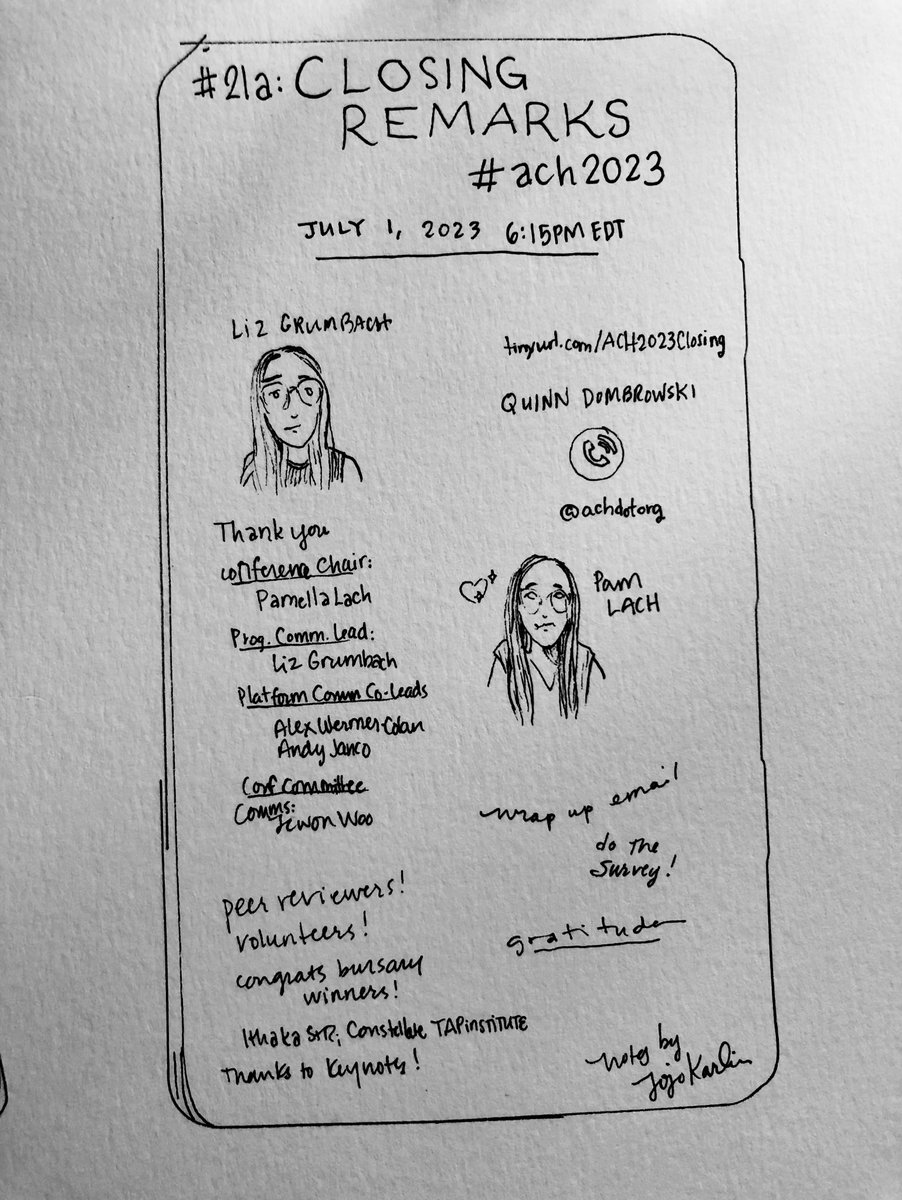 #21a: CLOSING
REMARKS
#ach2023
JULY 1, 2023 6:15PM EDT
LIZ GRUMBACH
Thank you
Conference Chair:
Pamella Lach
Prog. Comm. Lead:
Liz Grumbach
Platform Comm Co-Leads
Alex Wermer-Colan
Andy Janco
Conf Committee
Comms:
Jewon Woo
peer reviewers!
volunteers!
congrats bursary
winners!
Ithaka S+R; Constellate TAP INSTITUTE
Thanks to Keynotes!
tinyurl.com/ACH2023Closing
QUINN DOMBROWSKI
@achdotorg
Pam
LACH
wrap up email
do the
survey!
gratitude
notes by
Jojo Karlin